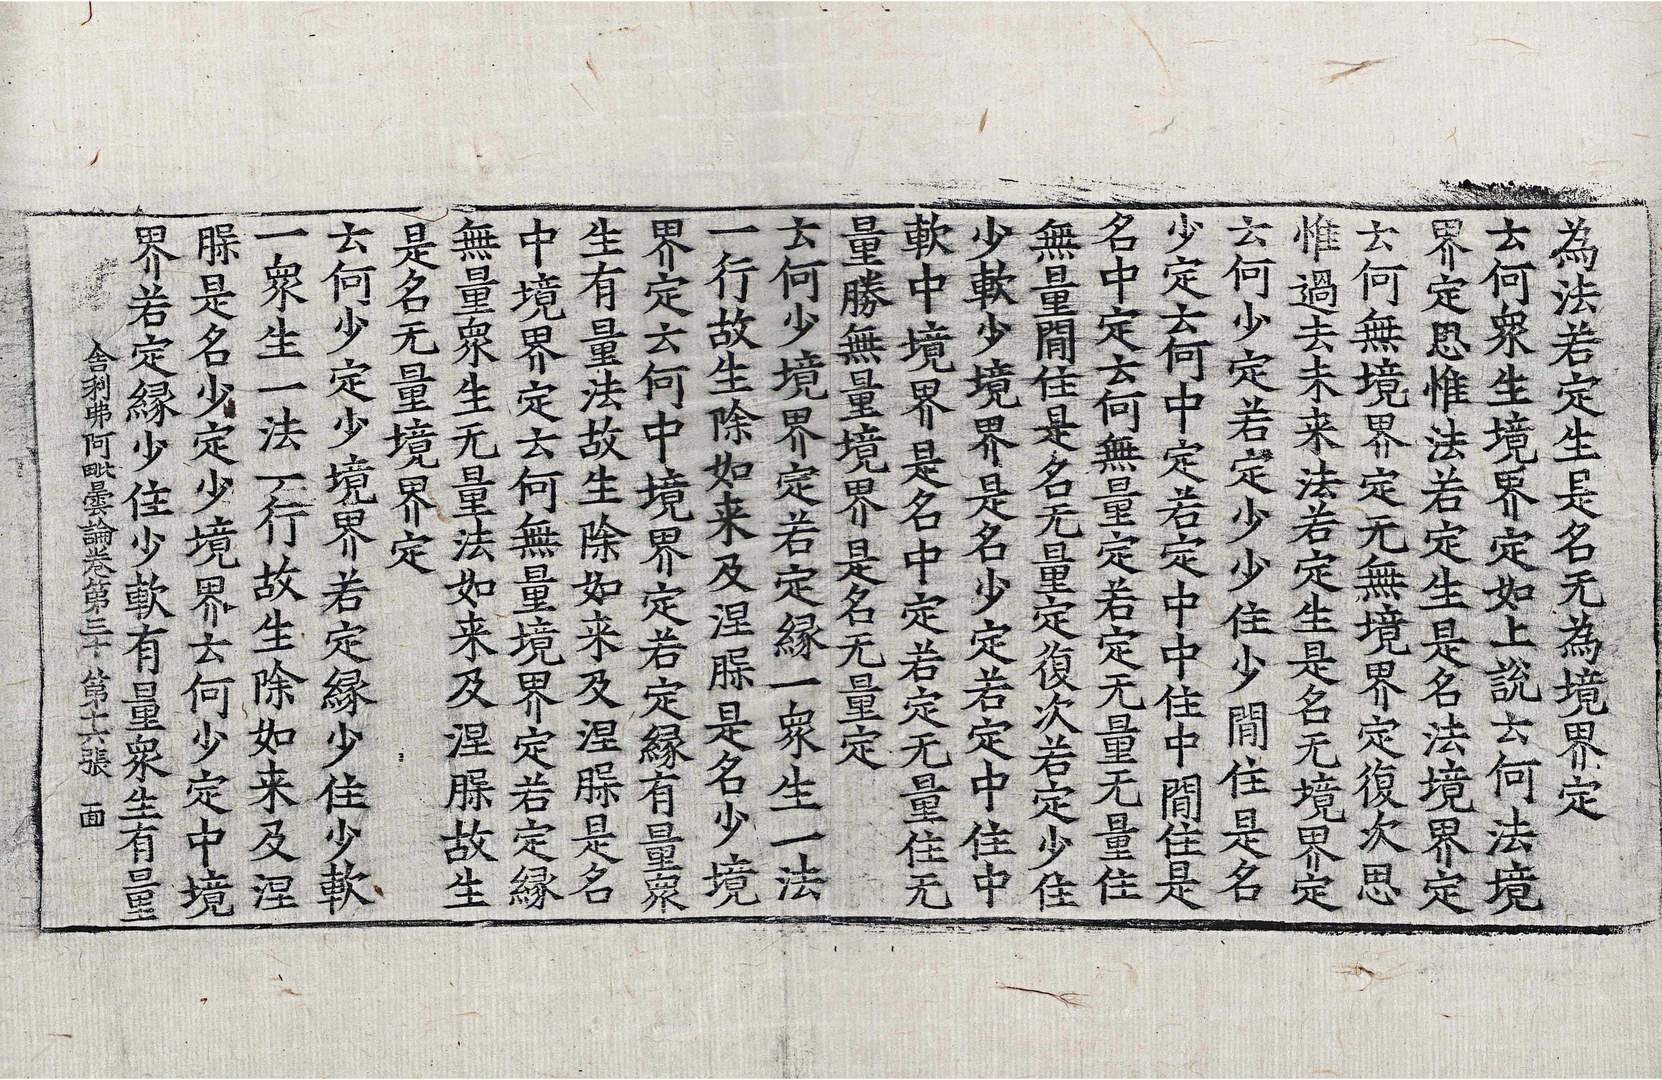 為法若定生是名无為境界定
云何衆生境界定如上說云何法境
界定思惟法若定生是名法境界定
云何無境界定无無境界定復次思
惟過去未来法若定生是名无境界定
云何少定若定少少住少閒住是名
少定云何中定若定中中住中閒住是
名中定云何無量定若定无量无量住
無量閒住是名无量定復次若定少住
少軟少境界是名少定若定中住中
軟中境界是名中定若定无量住无
量勝無量境界是名无量定
云何少境界定若定緣一衆生一法
一行故生除如来及涅槃是名少境
界定云何中境界定若定緣有量衆
生有量法故生除如来及涅槃是名
中境界定云何無量境界定若定緣
無量衆生无量法如来及涅槃故生
是名无量境界定
云何少定少境界若定緣少住少軟
一衆生一法一行故生除如来及涅
槃是名少定少境界云何少定中境
界若定緣少住少軟有量衆生有量
舎利弗阿毗曇論卷第三十 第十六張 面